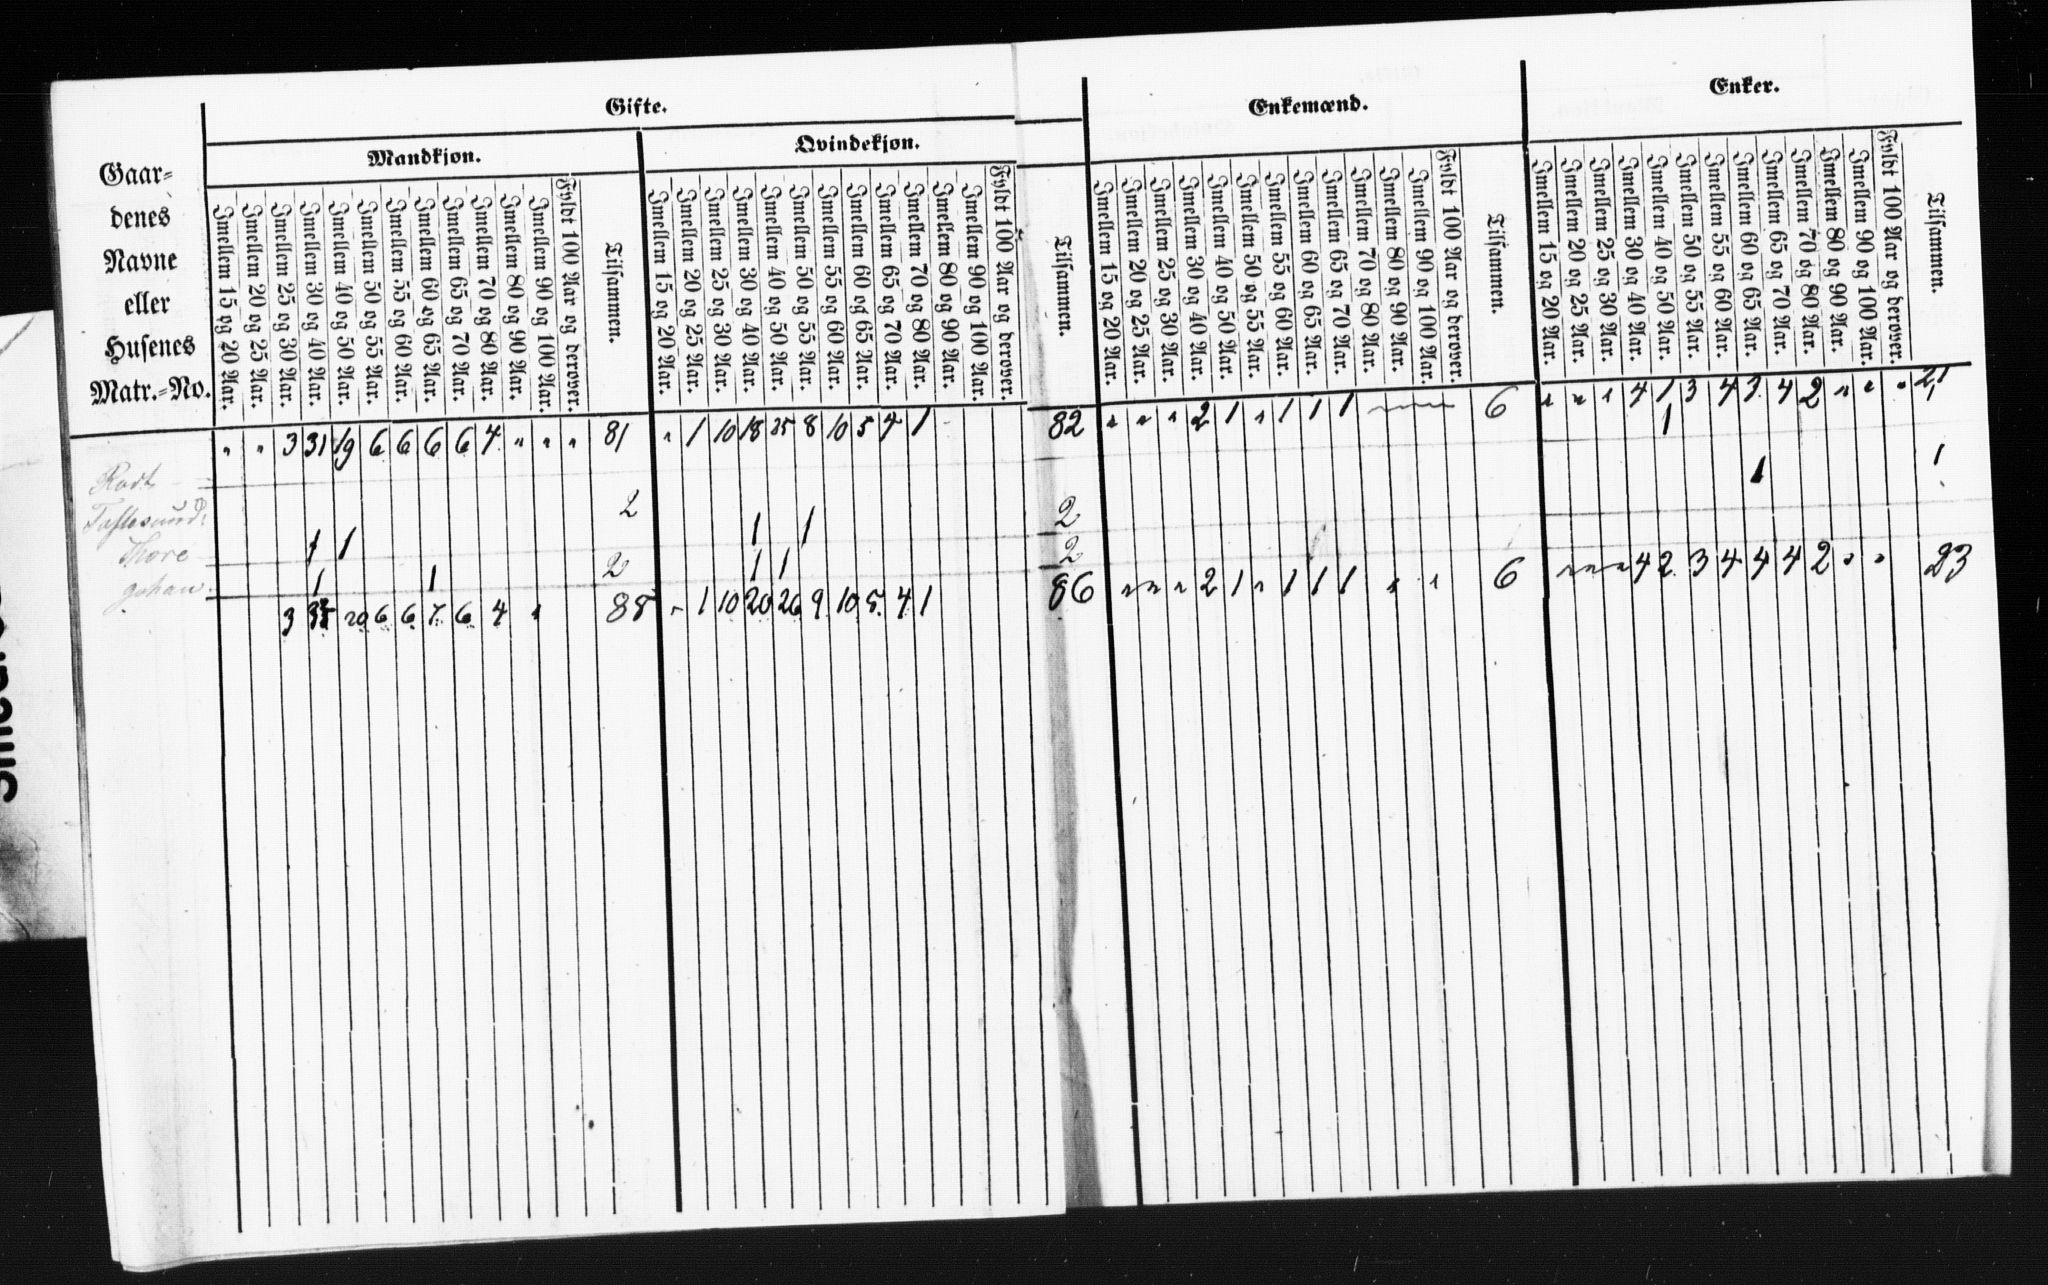 Gifte.
Enkemænd.
Enker.
Mandkjøn.
Qvindekjøn.
Gaar-
denes
Navne
eller
Husenes
Matr.-No.
Imellem 15 og 20 Aar.
Imellem 20 og 25 Aar.
Imellem 25 og 30 Aar.
Imellem 30 og 40 Aar.
Imellem 40 og 50 Aar.
Imellem 50 og 55 Aar.
Imellem 55 og 60 Aar.
Imellem 60 og 65 Aar.
Imellem 65 og 70 Aar.
Imellem 70 og 80 Aar.
Imellem 80 og 90 Aar.
Imellem 90 og 100 Aar.
Fyldt 100 Aar og derover.
Tilsammen.
Imellem 15 og 20 Aar.
Imellem 20 og 25 Aar.
Imellem 25 og 30 Aar.
Imellem 30 og 40 Aar.
Imellem 40 og 50 Aar.
Imellem 50 og 55 Aar.
Imellem 55 og 60 Aar.
Imellem 60 og 65 Aar.
Imellem 65 og 70 Aar.
Imellem 70 og 80 Aar.
Imellem 80 og 90 Aar.
Imellem 90 og 100 Aar.
Fyldt 100 Aar og derover.
Tilsammen.
Imellem 15 og 20 Aar.
Imellem 20 og 25 Aar.
Imellem 25 og 30 Aar.
Imellem 30 og 40 Aar.
Imellem 40 og 50 Aar.
Imellem 50 og 55 Aar.
Imellem 55 og 60 Aar.
Imellem 60 og 65 Aar.
Imellem 65 og 70 Aar.
Imellem 70 og 80 Aar.
Imellem 80 og 90 Aar.
Imellem 90 og 100 Aar.
Fyldt 100 Aar og derover.
Tilsammen.
Imellem 15 og 20 Aar.
Imellem 20 og 25 Aar.
Imellem 25 og 30 Aar.
Imellem 30 og 40 Aar.
Imellem 40 og 50 Aar.
Imellem 50 og 55 Aar.
Imellem 55 og 60 Aar.
Imellem 60 og 65 Aar.
Imellem 65 og 70 Aar.
Imellem 70 og 80 Aar.
Imellem 80 og 90 Aar.
Imellem 90 og 100 Aar.
Fyldt 100 Aar og derover.
Tilsammen.
" " 3 31 19 6 6 6 6 4 " " " 81 " 1 10 18 25 8 10 5 4 1 82 " " " 2 1 " 1 1 1 6 " " " 4 1 3 4 3 4 2 " " " 21
1
1 1
1 1 2 1 1 2
Thore 1 1 2 1 1 2
3 20 6 6 7 6 4 " 85 " 1 10 20 26 9 10 5 4 1 86 " " " 2 1 " 1 1 1 " " 6 " " " 4 2 3 4 4 4 2 " " 23